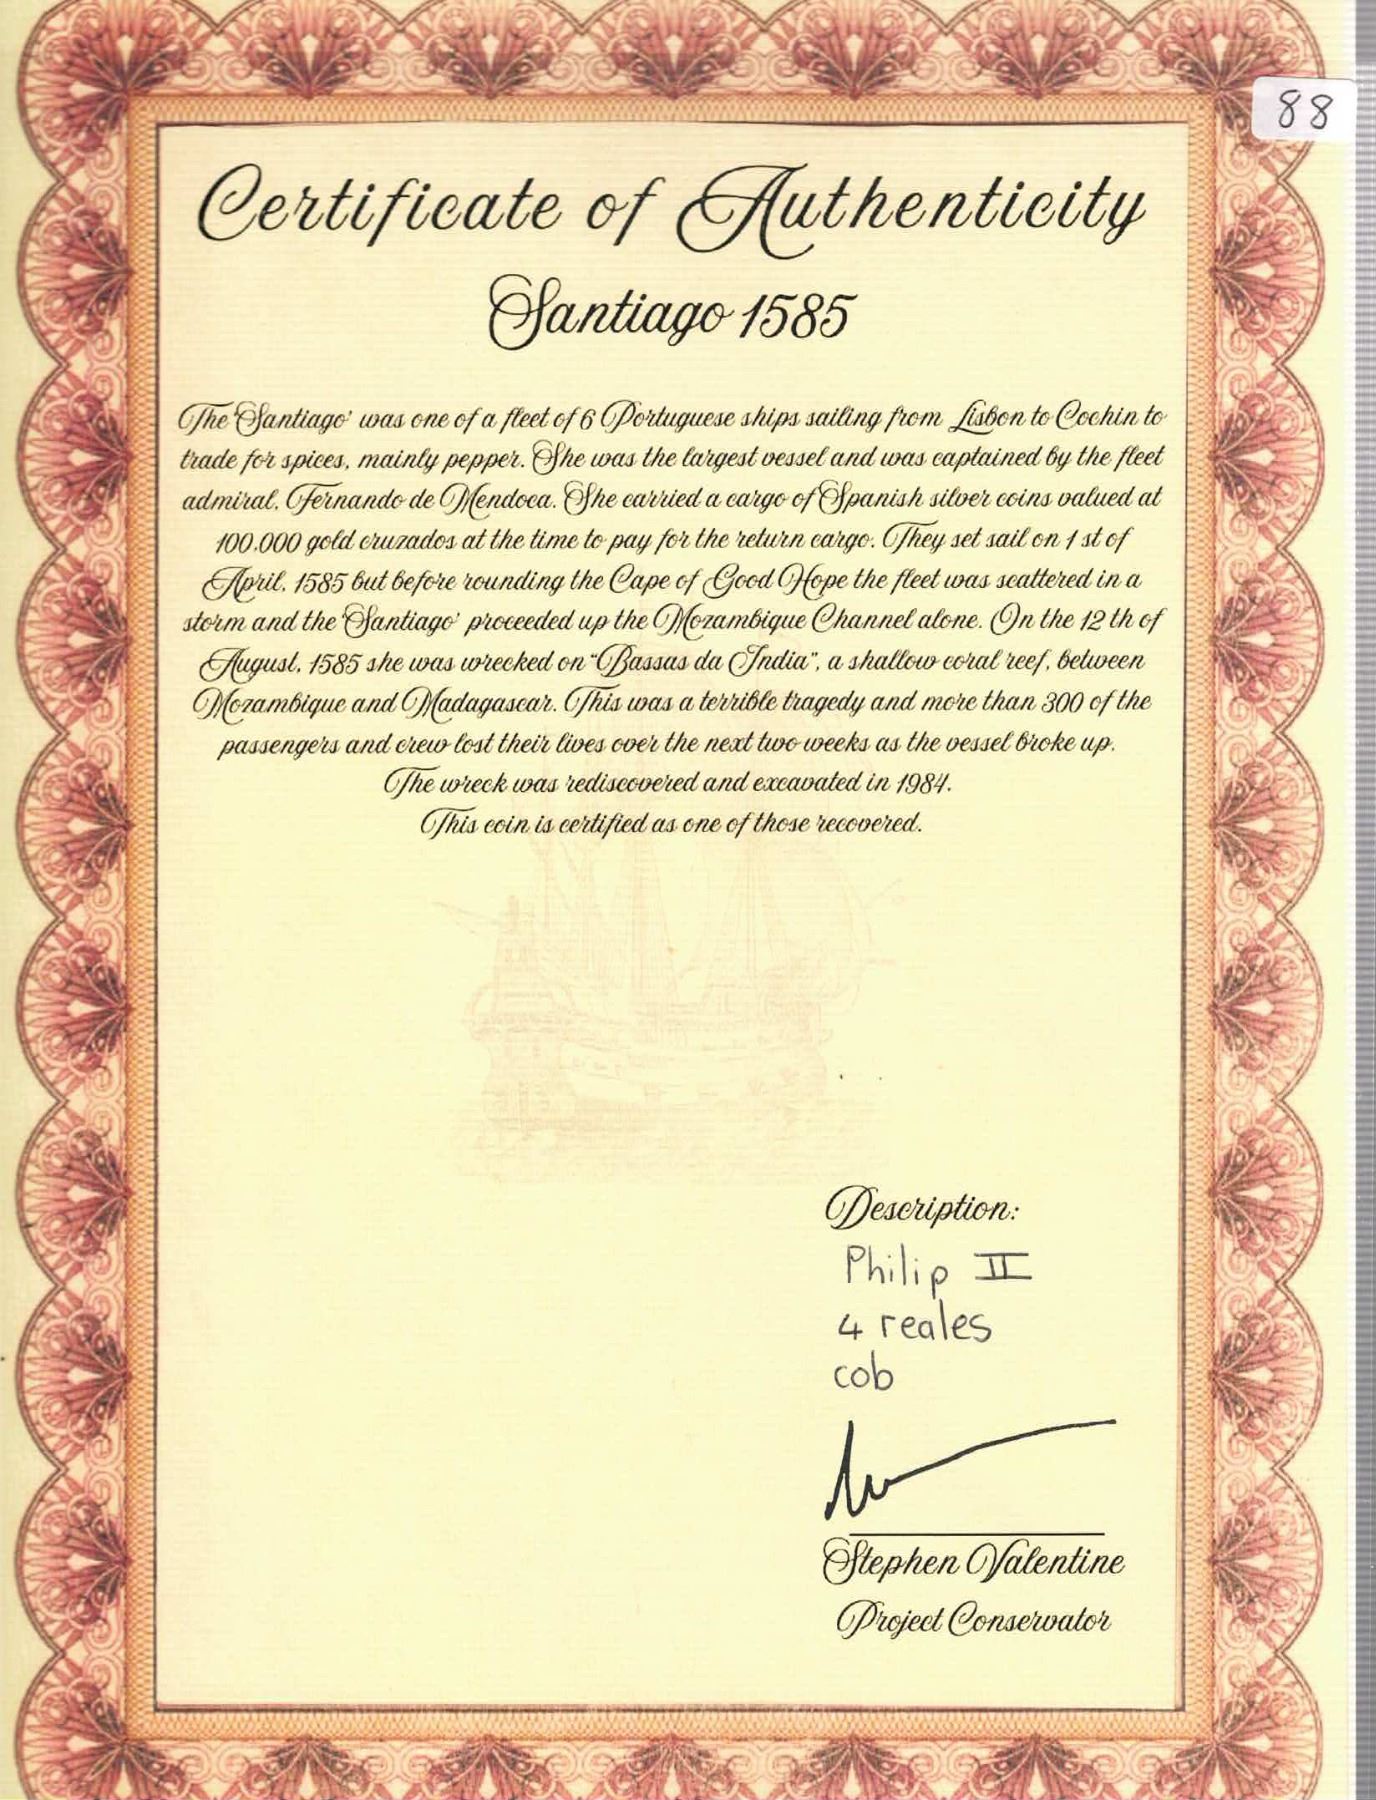 88
Certificate of Authenticity
Santiago 1585
The 'Santiago' was one of a fleet of 6 Portuguese ships sailing from Lisbon to Cochin to
trade for spices, mainly pepper. She was the largest vessel and was captained by the fleet
admiral, Fernando de Mendoca. She carried a cargo of Spanish silver coins valued at
100,000 gold cruzados at the time to pay for the return cargo. They set sail on 1 st of
April, 1585 but before rounding the Cape of Good Hope the fleet was scattered in a
storm and the 'Santiago' proceeded up the Mozambique Channel alone. On the 12 th of
August, 1585 she was wrecked on "Bassas da India", a shallow coral reef, between
Mozambique and Madagascar. This was a terrible tragedy and more than 300 of the
passengers and crew lost their lives over the next two weeks as the vessel broke up.
The wreck was rediscovered and excavated in 1984.
This coin is certified as one of those recovered.
Description:
Philip II
4 reales
cob
Stephen Valentine
Project Conservator